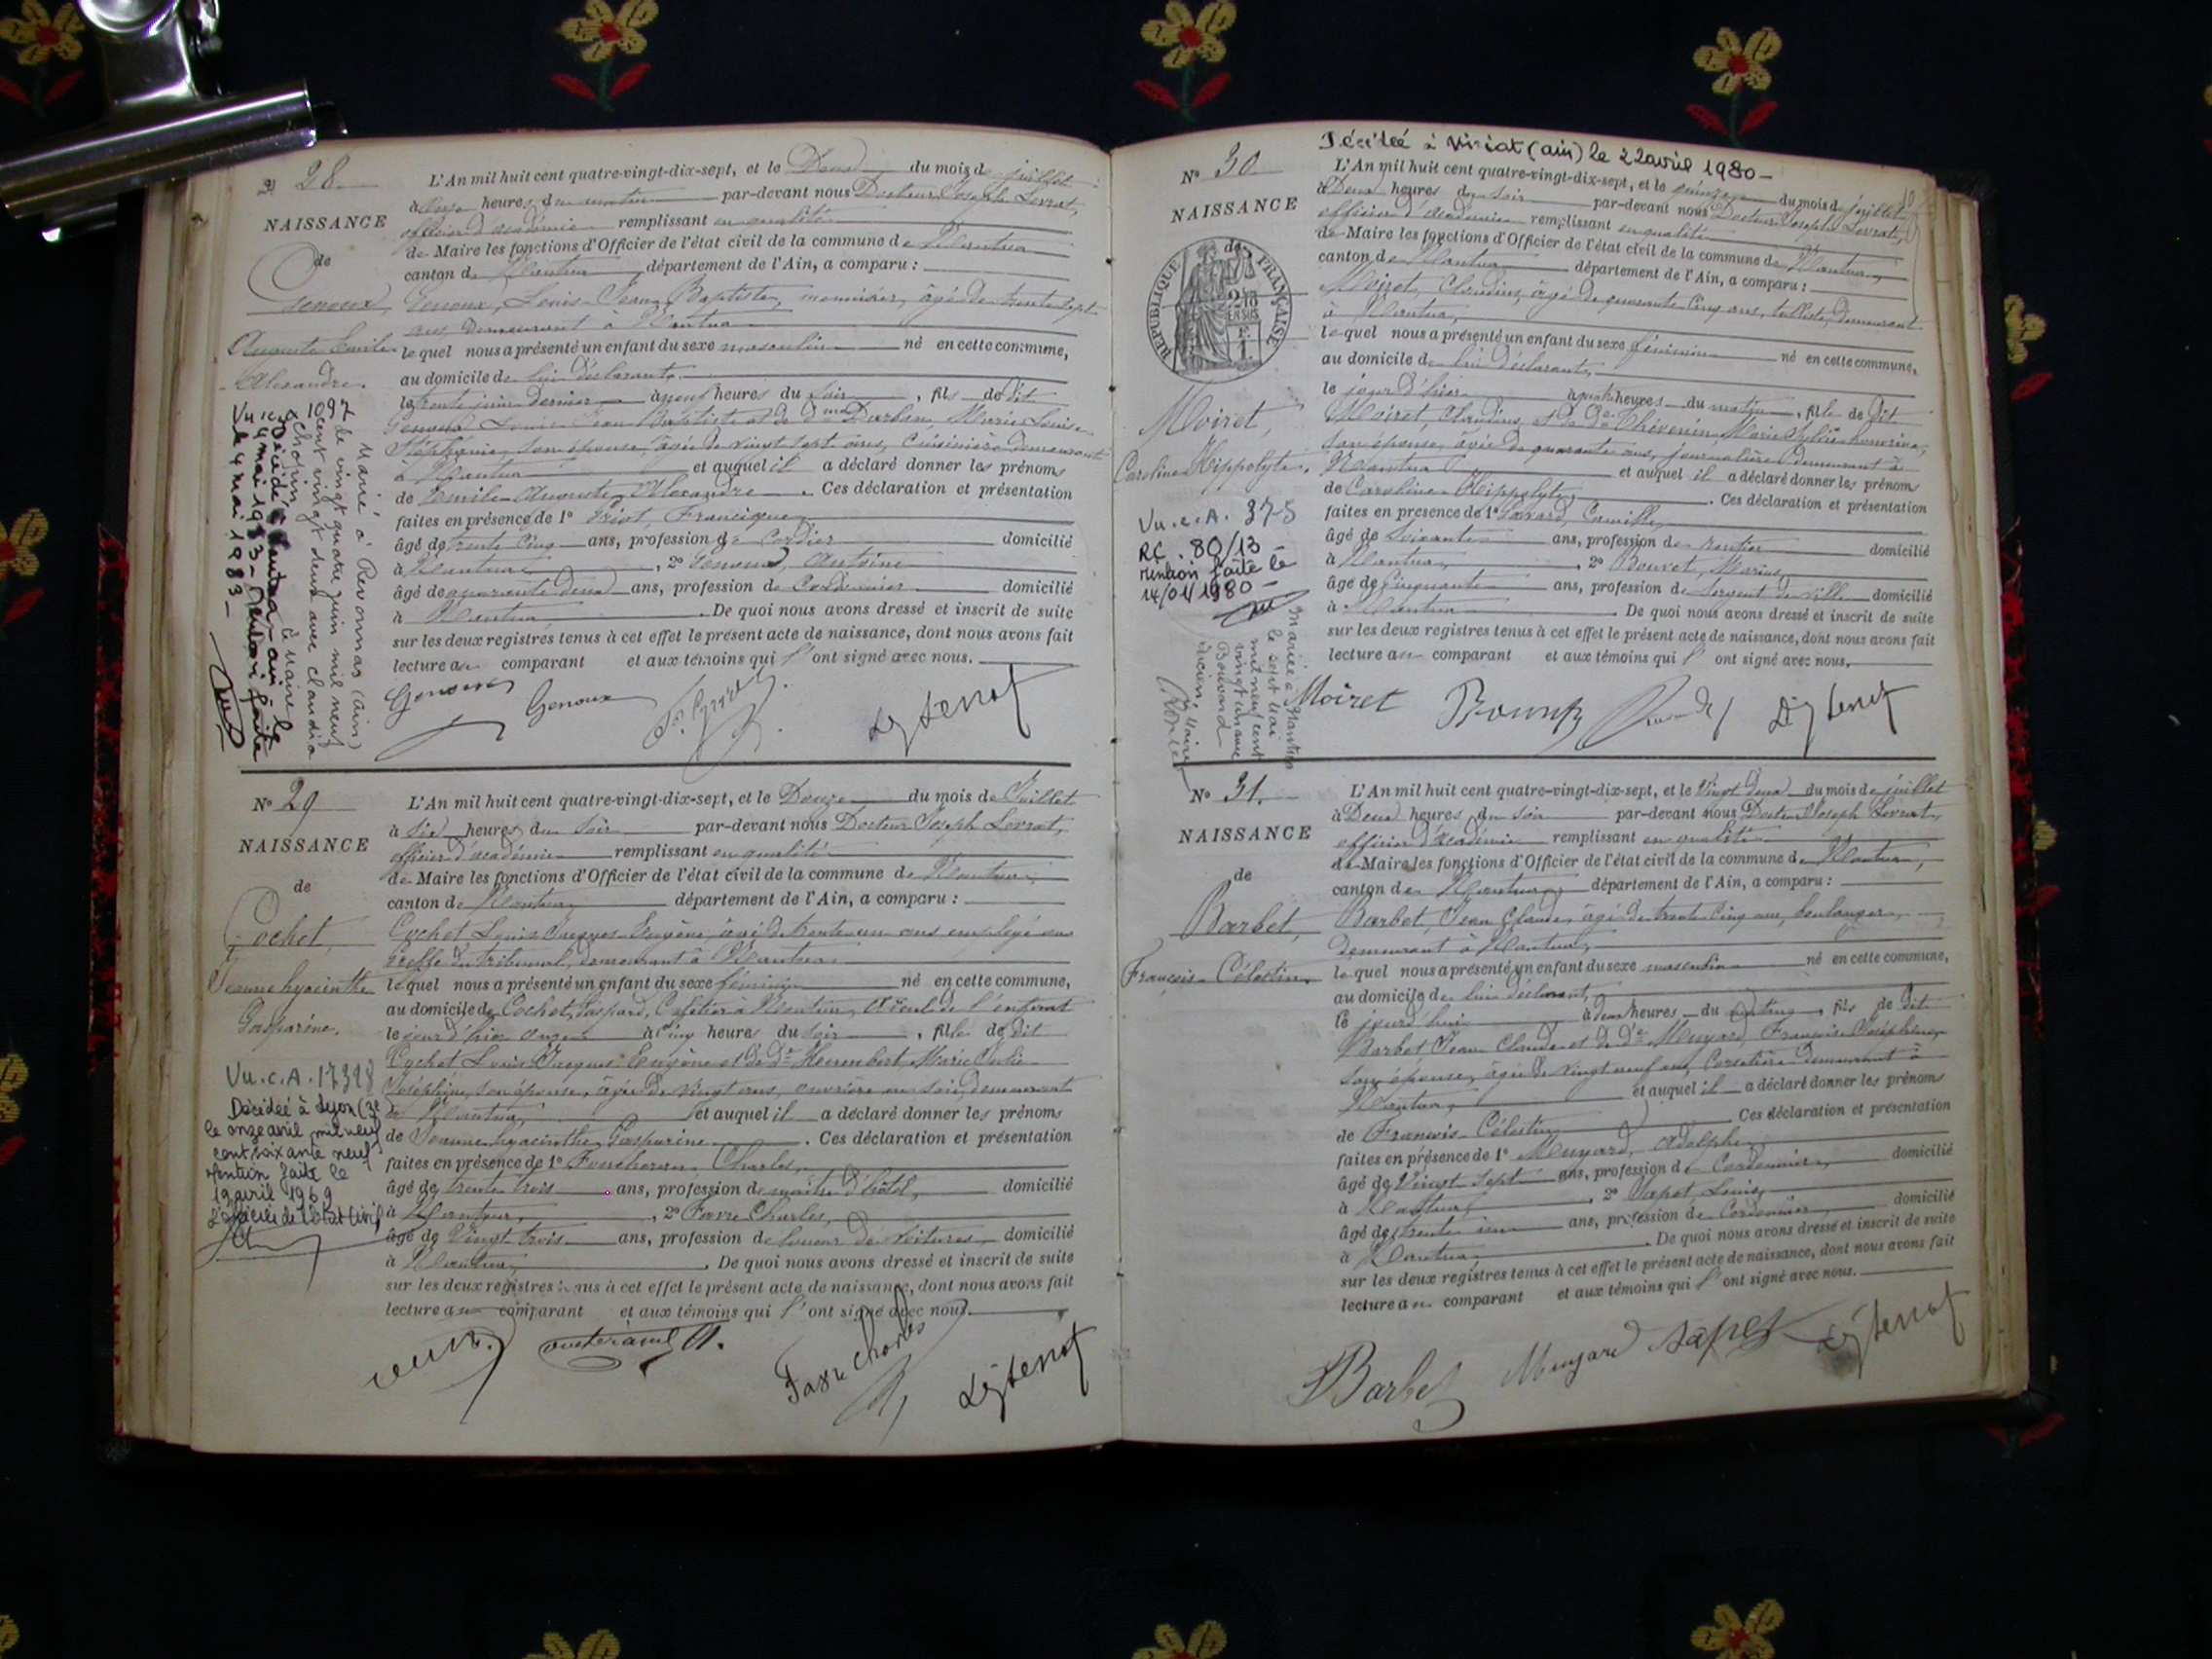 28
NAISSANCE
de
Genoux
Auguste Emile
Alexandre.
L'An mil huit cent quatre-vingt-dix-sept, et le Deux du mois de juillet
à onze heures du matin par-devant nous Docteur Joseph Levrat,
officier d'académie remplissant en qualité
de Maire les fonctions d'Officier de l'état civil de la commune de Nantua
canton de Nantua département de l'Ain, a comparu :
Genoux, Louis Jean Baptiste, menuisier, âgé de trente sept
ans demeurant à Nantua
lequel nous a présenté un enfant du sexe masculin né en cette commune,
au domicile de lui déclarant,
le trente juin dernier à neuf heures du soir, fils de dit
Genoux Louis Jean Baptiste et de dme Marie Louise
Stéphanie son épouse, âgée de vingt sept ans, cuisinière demeurant
à Nantua et auquel il a déclaré donner les prénoms
de Emile Auguste Alexandre. Ces déclaration et présentation
faites en présence de 1° Francisque
âgé de trente cinq ans, profession de Cordier domicilié
à Nantua, 2° Genoux, Antoine
âgé de quarante deux ans, profession de Cordonnier domicilié
à Nantua. De quoi nous avons dressé et inscrit de suite
sur les deux registres tenus à cet effet le présent acte de naissance, dont nous avons fait
lecture au comparant et aux témoins qui l'ont signé avec nous.
Genoux Genoux
Marié à Revonnas (Ain)
le vingt quatre juin mil neuf
cent vingt deux avec Claudia
Vu. c. A 1097
Décédé à Nantua - ain le
4 mai 1983 - Mention faite
le 4 mai 1983 -
N° 29
NAISSANCE
de
Cochet,
Jeanne hyacinthe
Gasparine.
L'An mil huit cent quatre-vingt-dix-sept, et le Douze du mois de Juillet
à Six heures du Soir par-devant nous Docteur Joseph Levrat,
officier d'académie remplissant en qualité
de Maire les fonctions d'Officier de l'état civil de la commune de Nantua
canton de Nantua département de l'Ain, a comparu :
Cochet Louis Jacques Eugène, âgé de trente un ans employé au
greffe du tribunal, demeurant à Nantua
lequel nous a présenté un enfant du sexe féminin né en cette commune,
au domicile de Cochet, Gaspard, Cafetier à Nantua, aïeul de l'enfant
le jour d'hier onze à cinq heures du soir, fille de dit
Cochet Louis Jacques Eugène et de De Humbert Marie
Joséphine, son épouse, âgée de vingt ans, ouvrière en soie, demeurant
à Nantua, et auquel il a déclaré donner les prénoms
de Jeanne hyacinthe Gasparine. Ces déclaration et présentation
faites en présence de 1° Charles,
âgé de trente trois ans, profession de maître d'hôtel, domicilié
à Nantua, 2° Favre Charles,
âgé de Vingt trois ans, profession de loueur de Voitures domicilié
à Nantua, De quoi nous avons dressé et inscrit de suite
sur les deux registres tenus à cet effet le présent acte de naissance, dont nous avons fait
lecture au comparant et aux témoins qui l'ont signé avec nous.
Favre Charles
Vu. c. A. 17398
Décédée à Lyon (3e
le onze avril mil neuf
cent soixante neuf
Mention faite le
19 avril 1969
L'officier de l'état civil
N° 30
NAISSANCE
de
RÉPUBLIQUE FRANÇAISE
Moiret,
Caroline Hippolyte.
Décédée à Viriat (ain) le 22 avril 1980 -
L'An mil huit cent quatre-vingt-dix-sept, et le quinze du mois de juillet
à Deux heures du soir par-devant nous Docteur Joseph Levrat,
officier d'académie remplissant en qualité
de Maire les fonctions d'Officier de l'état civil de la commune de Nantua,
canton de Nantua département de l'Ain, a comparu :
Moiret, Claudius, âgé de quarante cinq ans, demeurant
à Nantua,
lequel nous a présenté un enfant du sexe féminin né en cette commune,
au domicile de lui déclarant,
le jour d'hier à heures du matin, fille de dit
Moiret, Claudius, et de De Thévenin, Marie
son épouse, âgée de quarante ans, journalière demeurant à
Nantua et auquel il a déclaré donner les prénoms
de Caroline Hippolyte. Ces déclaration et présentation
faites en présence de 1° Camille,
âgé de Soixante ans, profession de rentier domicilié
à Nantua, 2° Bouvet, Marius,
âgé de Cinquante ans, profession de Sergent de ville domicilié
à Nantua De quoi nous avons dressé et inscrit de suite
sur les deux registres tenus à cet effet le présent acte de naissance, dont nous avons fait
lecture au comparant et aux témoins qui l'ont signé avec nous.
Moiret
Vu. c. A. 375
RC. 80/13
mention faite le
Mariée à Nantua
le sept Mai
mil neuf cent
vingt un avec
Bouvard
N° 31.
NAISSANCE
de
Barbet,
François Célestin.
L'An mil huit cent quatre-vingt-dix-sept, et le Vingt deux du mois de juillet
à Deux heures du soir par-devant nous Docteur Joseph Levrat,
officier d'académie remplissant en qualité
de Maire les fonctions d'Officier de l'état civil de la commune de Nantua,
canton de Nantua département de l'Ain, a comparu :
Barbet, Jean Claude, âgé de trente cinq ans, boulanger,
demeurant à Nantua,
lequel nous a présenté un enfant du sexe masculin né en cette commune,
au domicile de lui déclarant,
le jourd'hui à deux heures du matin, fils de dit
Barbet, Jean Claude et de De Meygard, Françoise Joséphine,
son épouse, âgée de vingt neuf ans, demeurant à
Nantua, et auquel il a déclaré donner les prénoms
de François Célestin Ces déclaration et présentation
faites en présence de 1° Adolphe,
âgé de Vingt sept ans, profession de Cordonnier, domicilié
à Nantua, 2° Sapet Louis,
âgé de trente ans, profession de Cordonnier, domicilié
à Nantua, De quoi nous avons dressé et inscrit de suite
sur les deux registres tenus à cet effet le présent acte de naissance, dont nous avons fait
lecture au comparant et aux témoins qui l'ont signé avec nous.
Barbet Sapet